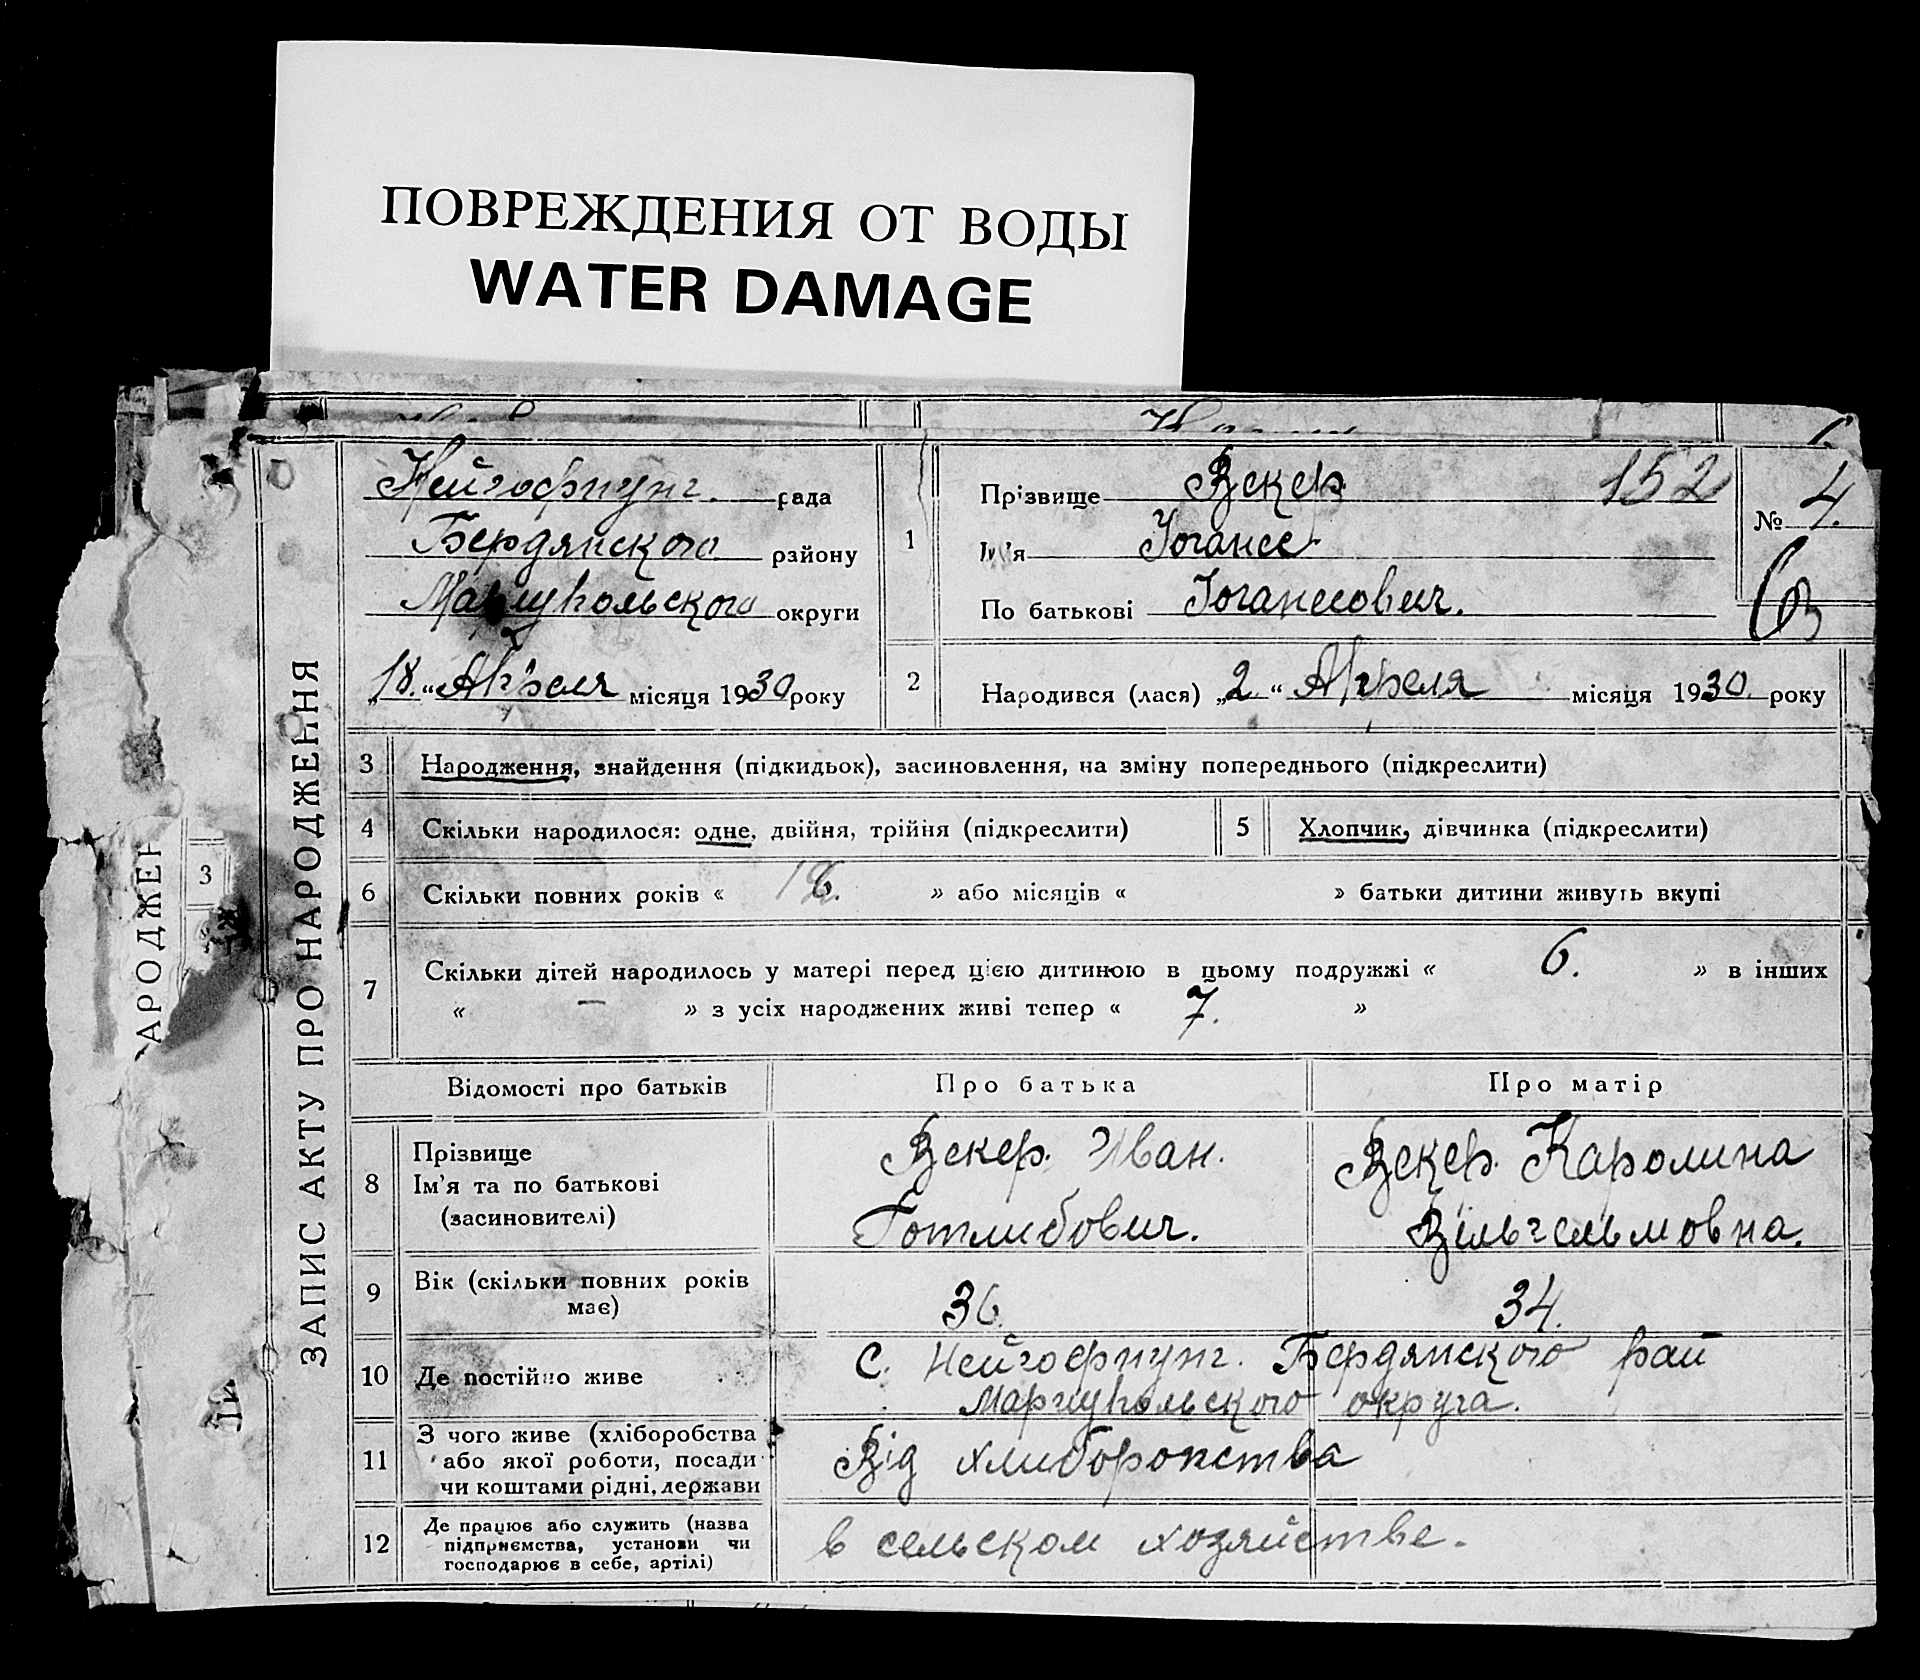 ПОВРЕЖДЕНИЯ ОТ ВОДЫ
WATER DAMAGE
ЗАПИС АКТУ ПРО НАРОДЖЕННЯ
АРОДЖЕН
3
Нейгофнунг. рада
Бердянского району
Мариупольского округи
„18.“ Апреля місяця 1930 року
1
Прізвище Векер 152
Ім'я Іоганес
По батькові Іоганесович.
№ 4.
2 Народився (лася) „2.“ Апреля місяця 1930. року
3 Народження, знайдення (підкидьок), засиновлення, на зміну попереднього (підкреслити)
4 Скільки народилося: одне, двійня, трійня (підкреслити) 5 Хлопчик, дівчинка (підкреслити)
6 Скільки повних років « » або місяців « » батьки дитини живуть вкупі
7 Скільки дітей народилось у матері перед цією дитиною в цьому подружжі « 6. » в інших
« — » з усіх народжених живі тепер « 7. »
Відомості про батьків Про батька Про матір
8 Прізвище
Ім'я та по батькові
(засиновителі)
Векер. Иван.
Готлибович.
Векер. Каролина
Вільгельмовна.
9 Вік (скільки повних років
має)
36. 34.
10 Де постійно живе С. Нейгофнунг. Бердянского рай
Мариупольского округа.
11 З чого живе (хліборобства
або якої роботи, посади
чи коштами рідні, держави
Від хлиборопства
12 Де працює або служить (назва
підприємства, установи чи
господарює в себе, артілі)
в сельском хозяйстве.